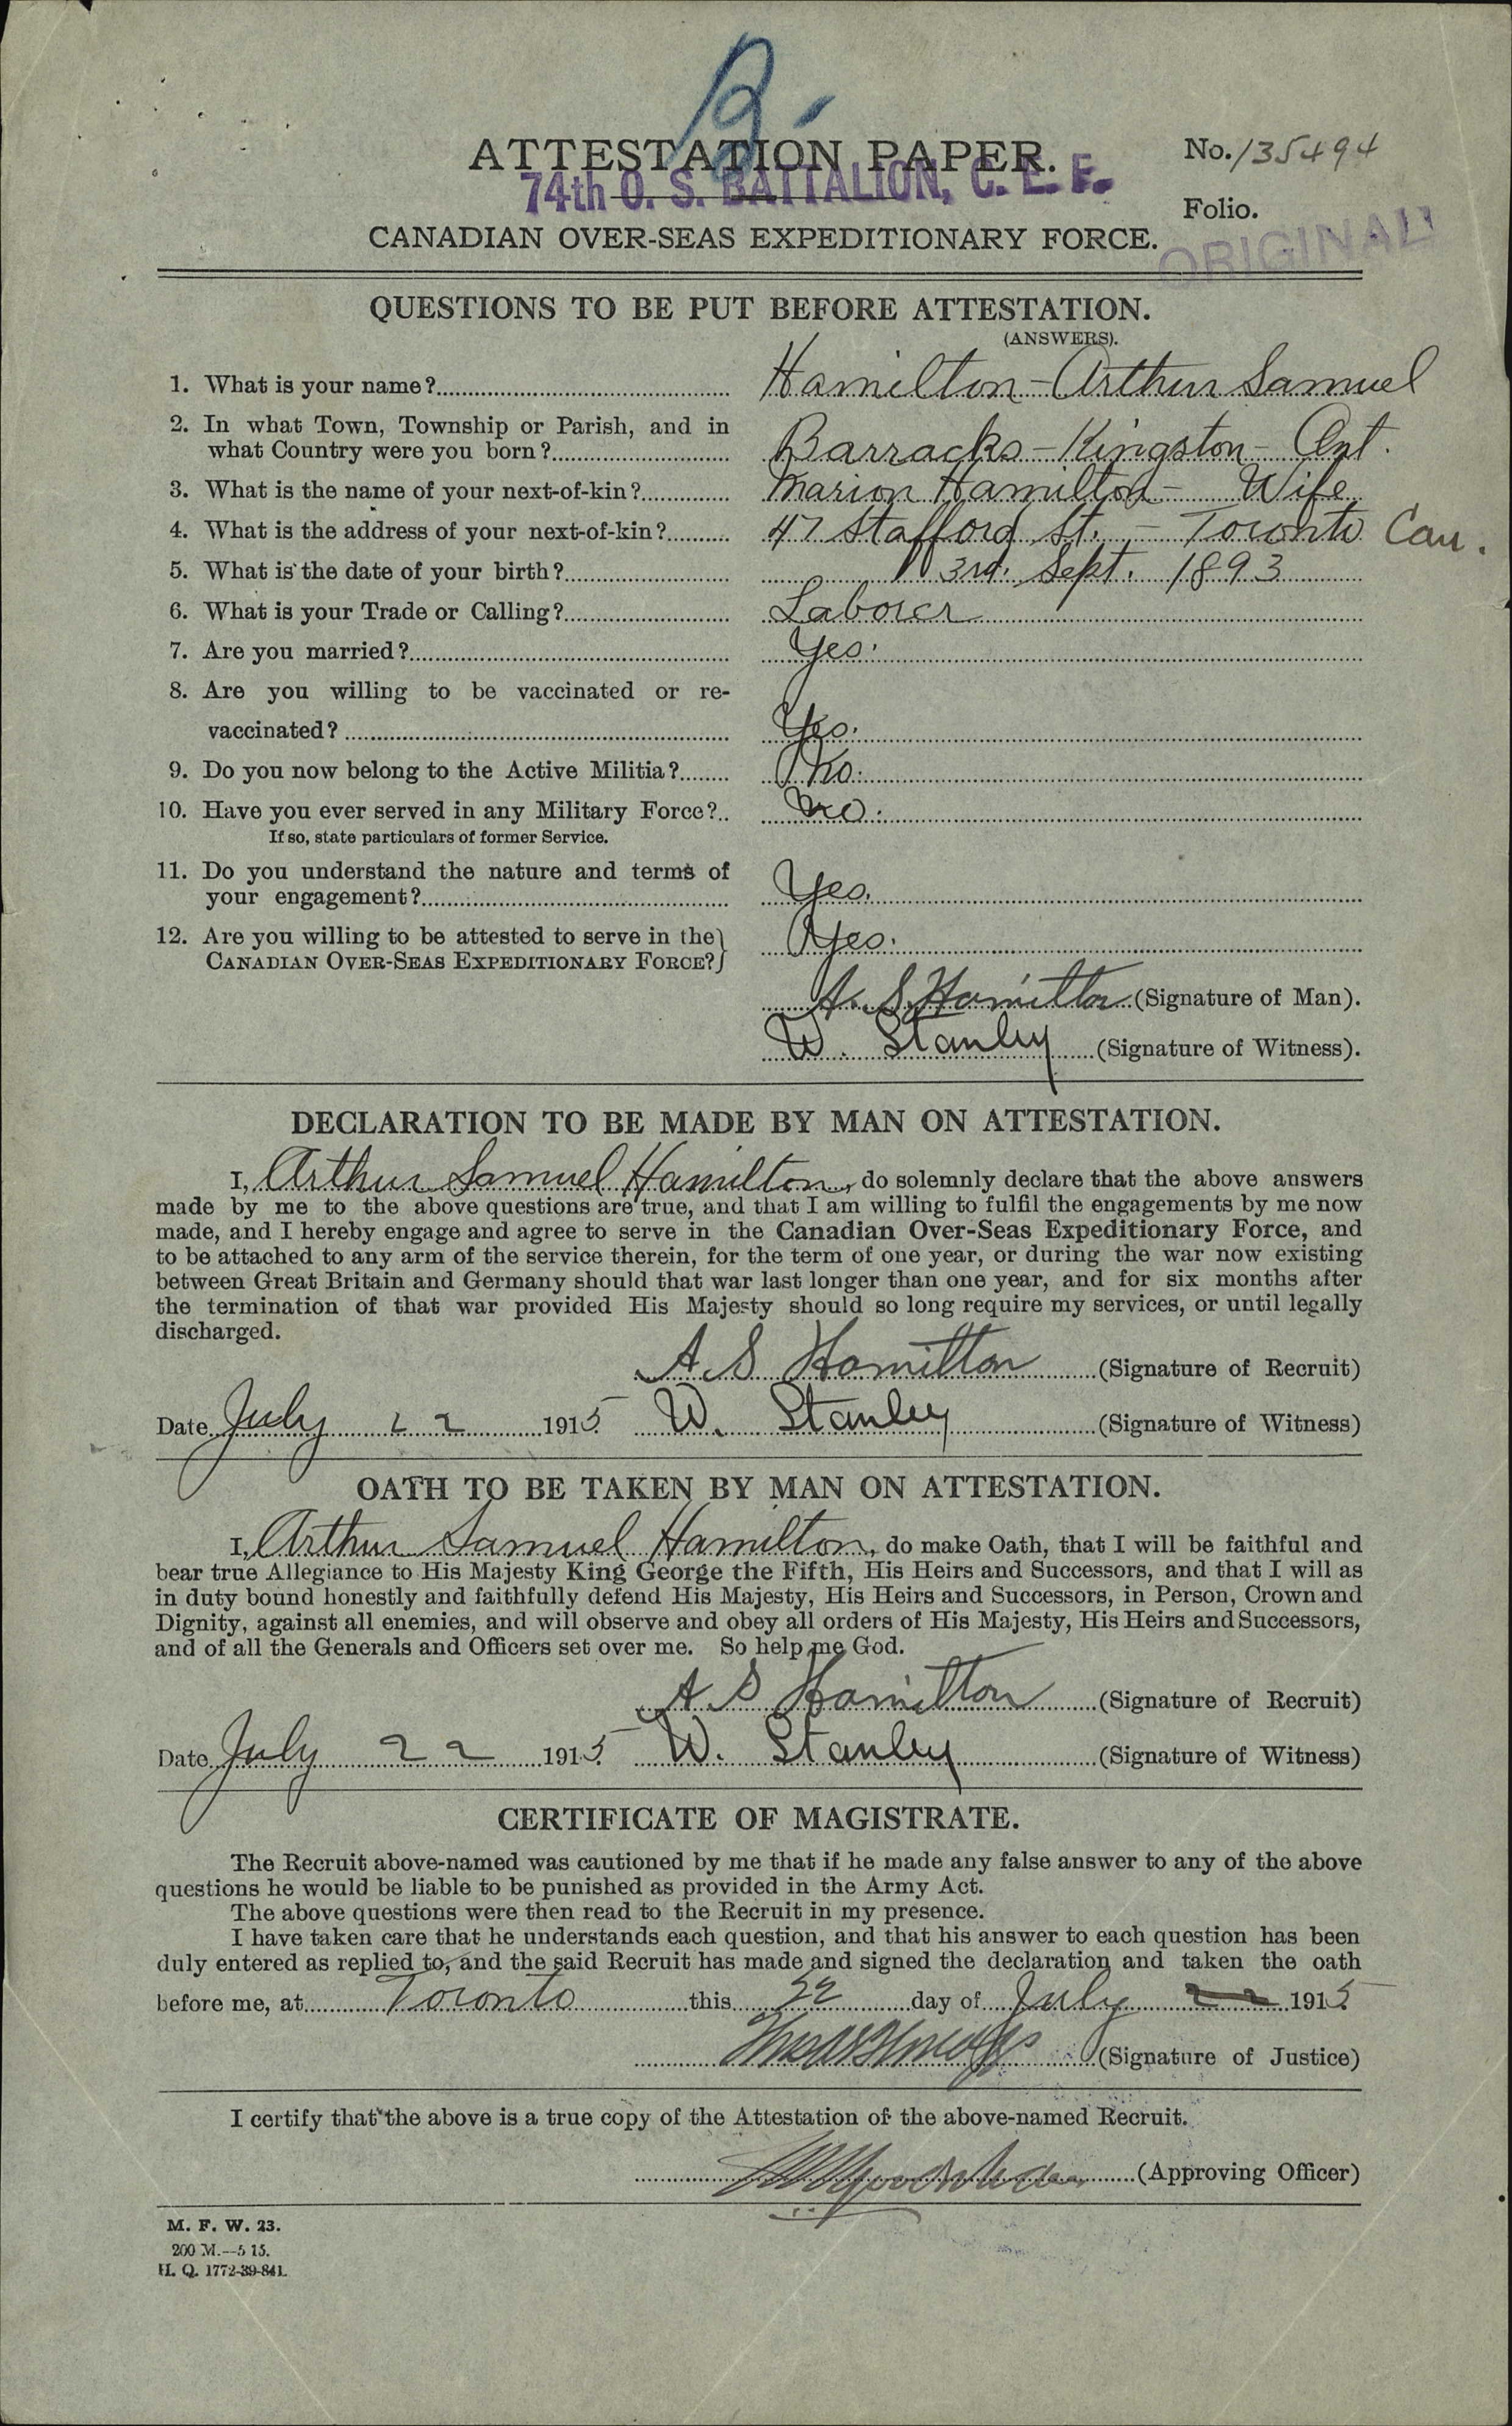 ATTESTATION PAPER.
No. 135494
74th O. S. BATTALION, C. E. F.
Folio.
CANADIAN OVER-SEAS EXPEDITIONARY FORCE.
ORIGINAL
QUESTIONS TO BE PUT BEFORE ATTESTATION.
(ANSWERS).
1. What is your name? Hamilton - Arthur Samuel
2. In what Town, Township or Parish, and in
what Country were you born? Barracks - Kingston - Ont.
3. What is the name of your next-of-kin? Marion Hamilton - Wife
4. What is the address of your next-of-kin? 47 Stafford St. - Toronto Can.
5. What is the date of your birth? 3rd. Sept. 1893
6. What is your Trade or Calling? Laborer
7. Are you married? Yes.
8. Are you willing to be vaccinated or re-
vaccinated? Yes.
9. Do you now belong to the Active Militia? No.
10. Have you ever served in any Military Force? No.
If so, state particulars of former Service.
11. Do you understand the nature and terms of
your engagement? Yes.
12. Are you willing to be attested to serve in the
CANADIAN OVER-SEAS EXPEDITIONARY FORCE? Yes.
A. S. Hamilton (Signature of Man).
W. Stanley (Signature of Witness).
DECLARATION TO BE MADE BY MAN ON ATTESTATION.
I, Arthur Samuel Hamilton, do solemnly declare that the above answers
made by me to the above questions are true, and that I am willing to fulfil the engagements by me now
made, and I hereby engage and agree to serve in the Canadian Over-Seas Expeditionary Force, and
to be attached to any arm of the service therein, for the term of one year, or during the war now existing
between Great Britain and Germany should that war last longer than one year, and for six months after
the termination of that war provided His Majesty should so long require my services, or until legally
discharged.
A. S Hamilton (Signature of Recruit)
Date July 22 1915 W. Stanley (Signature of Witness)
OATH TO BE TAKEN BY MAN ON ATTESTATION.
I, Arthur Samuel Hamilton, do make Oath, that I will be faithful and
bear true Allegiance to His Majesty King George the Fifth, His Heirs and Successors, and that I will as
in duty bound honestly and faithfully defend His Majesty, His Heirs and Successors, in Person, Crown and
Dignity, against all enemies, and will observe and obey all orders of His Majesty, His Heirs and Successors,
and of all the Generals and Officers set over me. So help me God.
A. S Hamilton (Signature of Recruit)
Date July 22 1915 W. Stanley (Signature of Witness)
CERTIFICATE OF MAGISTRATE.
The Recruit above-named was cautioned by me that if he made any false answer to any of the above
questions he would be liable to be punished as provided in the Army Act.
The above questions were then read to the Recruit in my presence.
I have taken care that he understands each question, and that his answer to each question has been
duly entered as replied to, and the said Recruit has made and signed the declaration and taken the oath
before me, at Toronto this 22 day of July 22 1915
(Signature of Justice)
I certify that the above is a true copy of the Attestation of the above-named Recruit.
(Approving Officer)
M. F. W. 23.
200 M.--5 15.
H. Q. 1772-39-841.